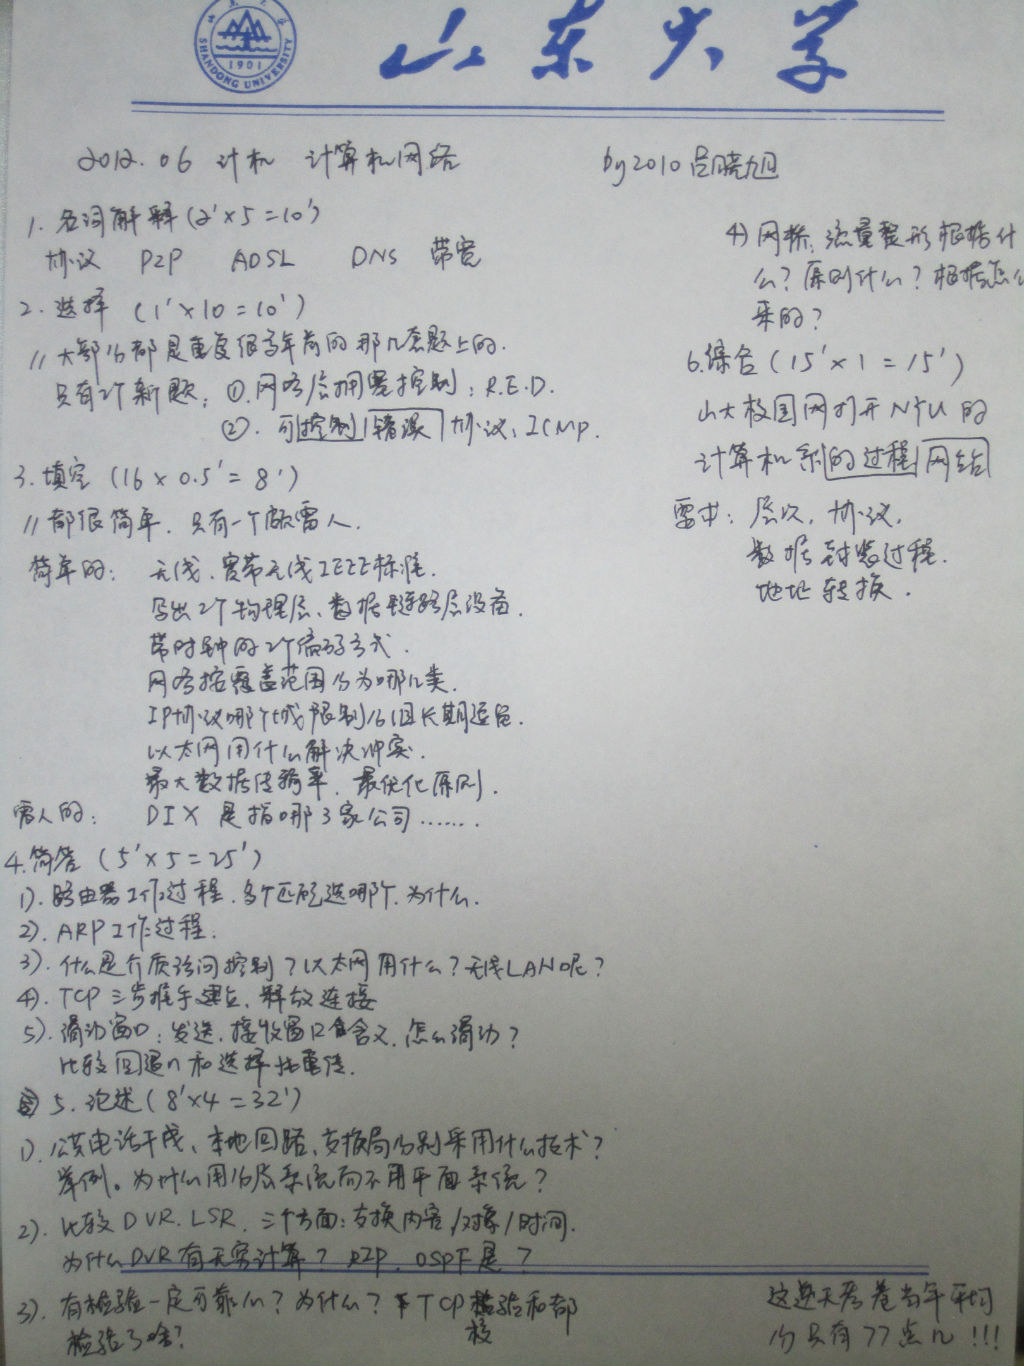 山东大学
SHANDONG UNIVERSITY
1901
2012.06 计机 计算机网络
by2010 吕晓旭
1. 名词解释(2'×5=10')
协议 P2P ADSL DNS 带宽
2. 选择 (1'×10=10')
// 大部分都是重复很多年前的那几套题上的.
只有2个新题: ①.网络层拥塞控制: R.E.D.
②. 可控制错误协议: ICMP.
3. 填空 (16×0.5'=8')
// 都很简单. 只有一个颇雷人.
简单的: 无线、宽带无线IEEE标准.
写出2个物理层、数据链路层设备.
带时钟的2个编码方式.
网络按覆盖范围分为哪几类.
IP协议哪个域限制分组长期逗留.
以太网用什么解决冲突.
最大数据传输率. 最优化原则.
雷人的: DIX 是指哪3家公司......
4.简答 (5'×5=25')
1). 路由器工作过程. 多个匹配选哪个. 为什么.
2). ARP工作过程.
3). 什么是介质访问控制? 以太网用什么? 无线LAN呢?
4). TCP 三步握手建立、释放连接
5). 滑动窗口: 发送、接收窗口含义. 怎么滑动?
比较回退n和选择性重传.
5. 论述 (8'×4=32')
1). 公共电话干线、本地回路、交换局分别采用什么技术?
举例。为什么用分层系统而不用平面系统?
2). 比较 DVR. LSR. 三个方面: 交换内容/对象/时间.
为什么DVR有无穷计算? RIP、OSPF是?
3). 有检验一定可靠么? 为什么? TCP校验和都
检验了啥?
4) 网桥、流量整形根据什
么? 原则什么? 根据怎么
来的?
6.综合 (15'×1=15')
山大校园网打开NYU的
计算机系网站的过程
需求: 层次, 协议,
数据封装过程.
地址转换.
这逆天考卷当年平均
分只有77点几!!!